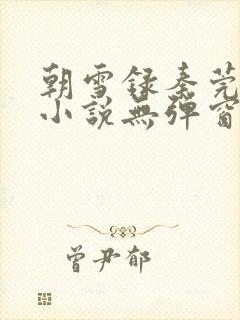 朝雪録秦莞
小說無彈窗
曾尹郁